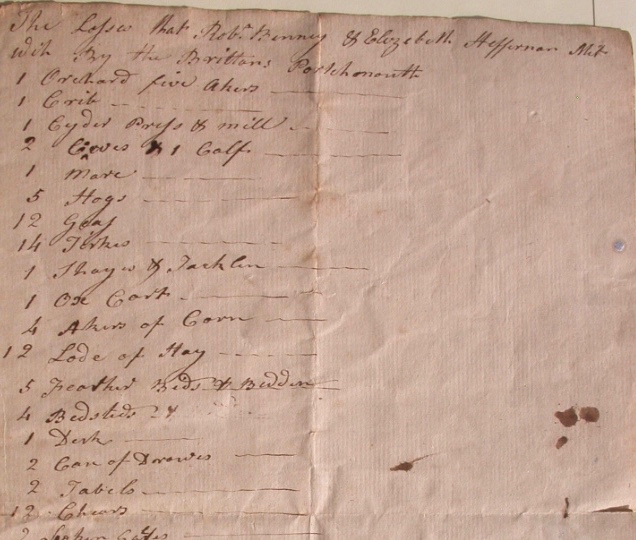 The Losses that Robt. Benney & Elizebeth Heffernan Met
with By the Brittons Portchmouth
1 Orchard five Akers
1 Crib
1 Cyder Press & mill
2 Cowes & 1 Calf
1 Mare
5 Hogs
12 Geas
14 Torkes
1 Shayes & Tacklen
1 Oxe Cart
4 Akers of Corn
12 Lode of Hay
5 Feather Beds & Bedden
4 Bedsteds &
1 Desk
2 Cas of Drowes
2 Tabels
12 Chears